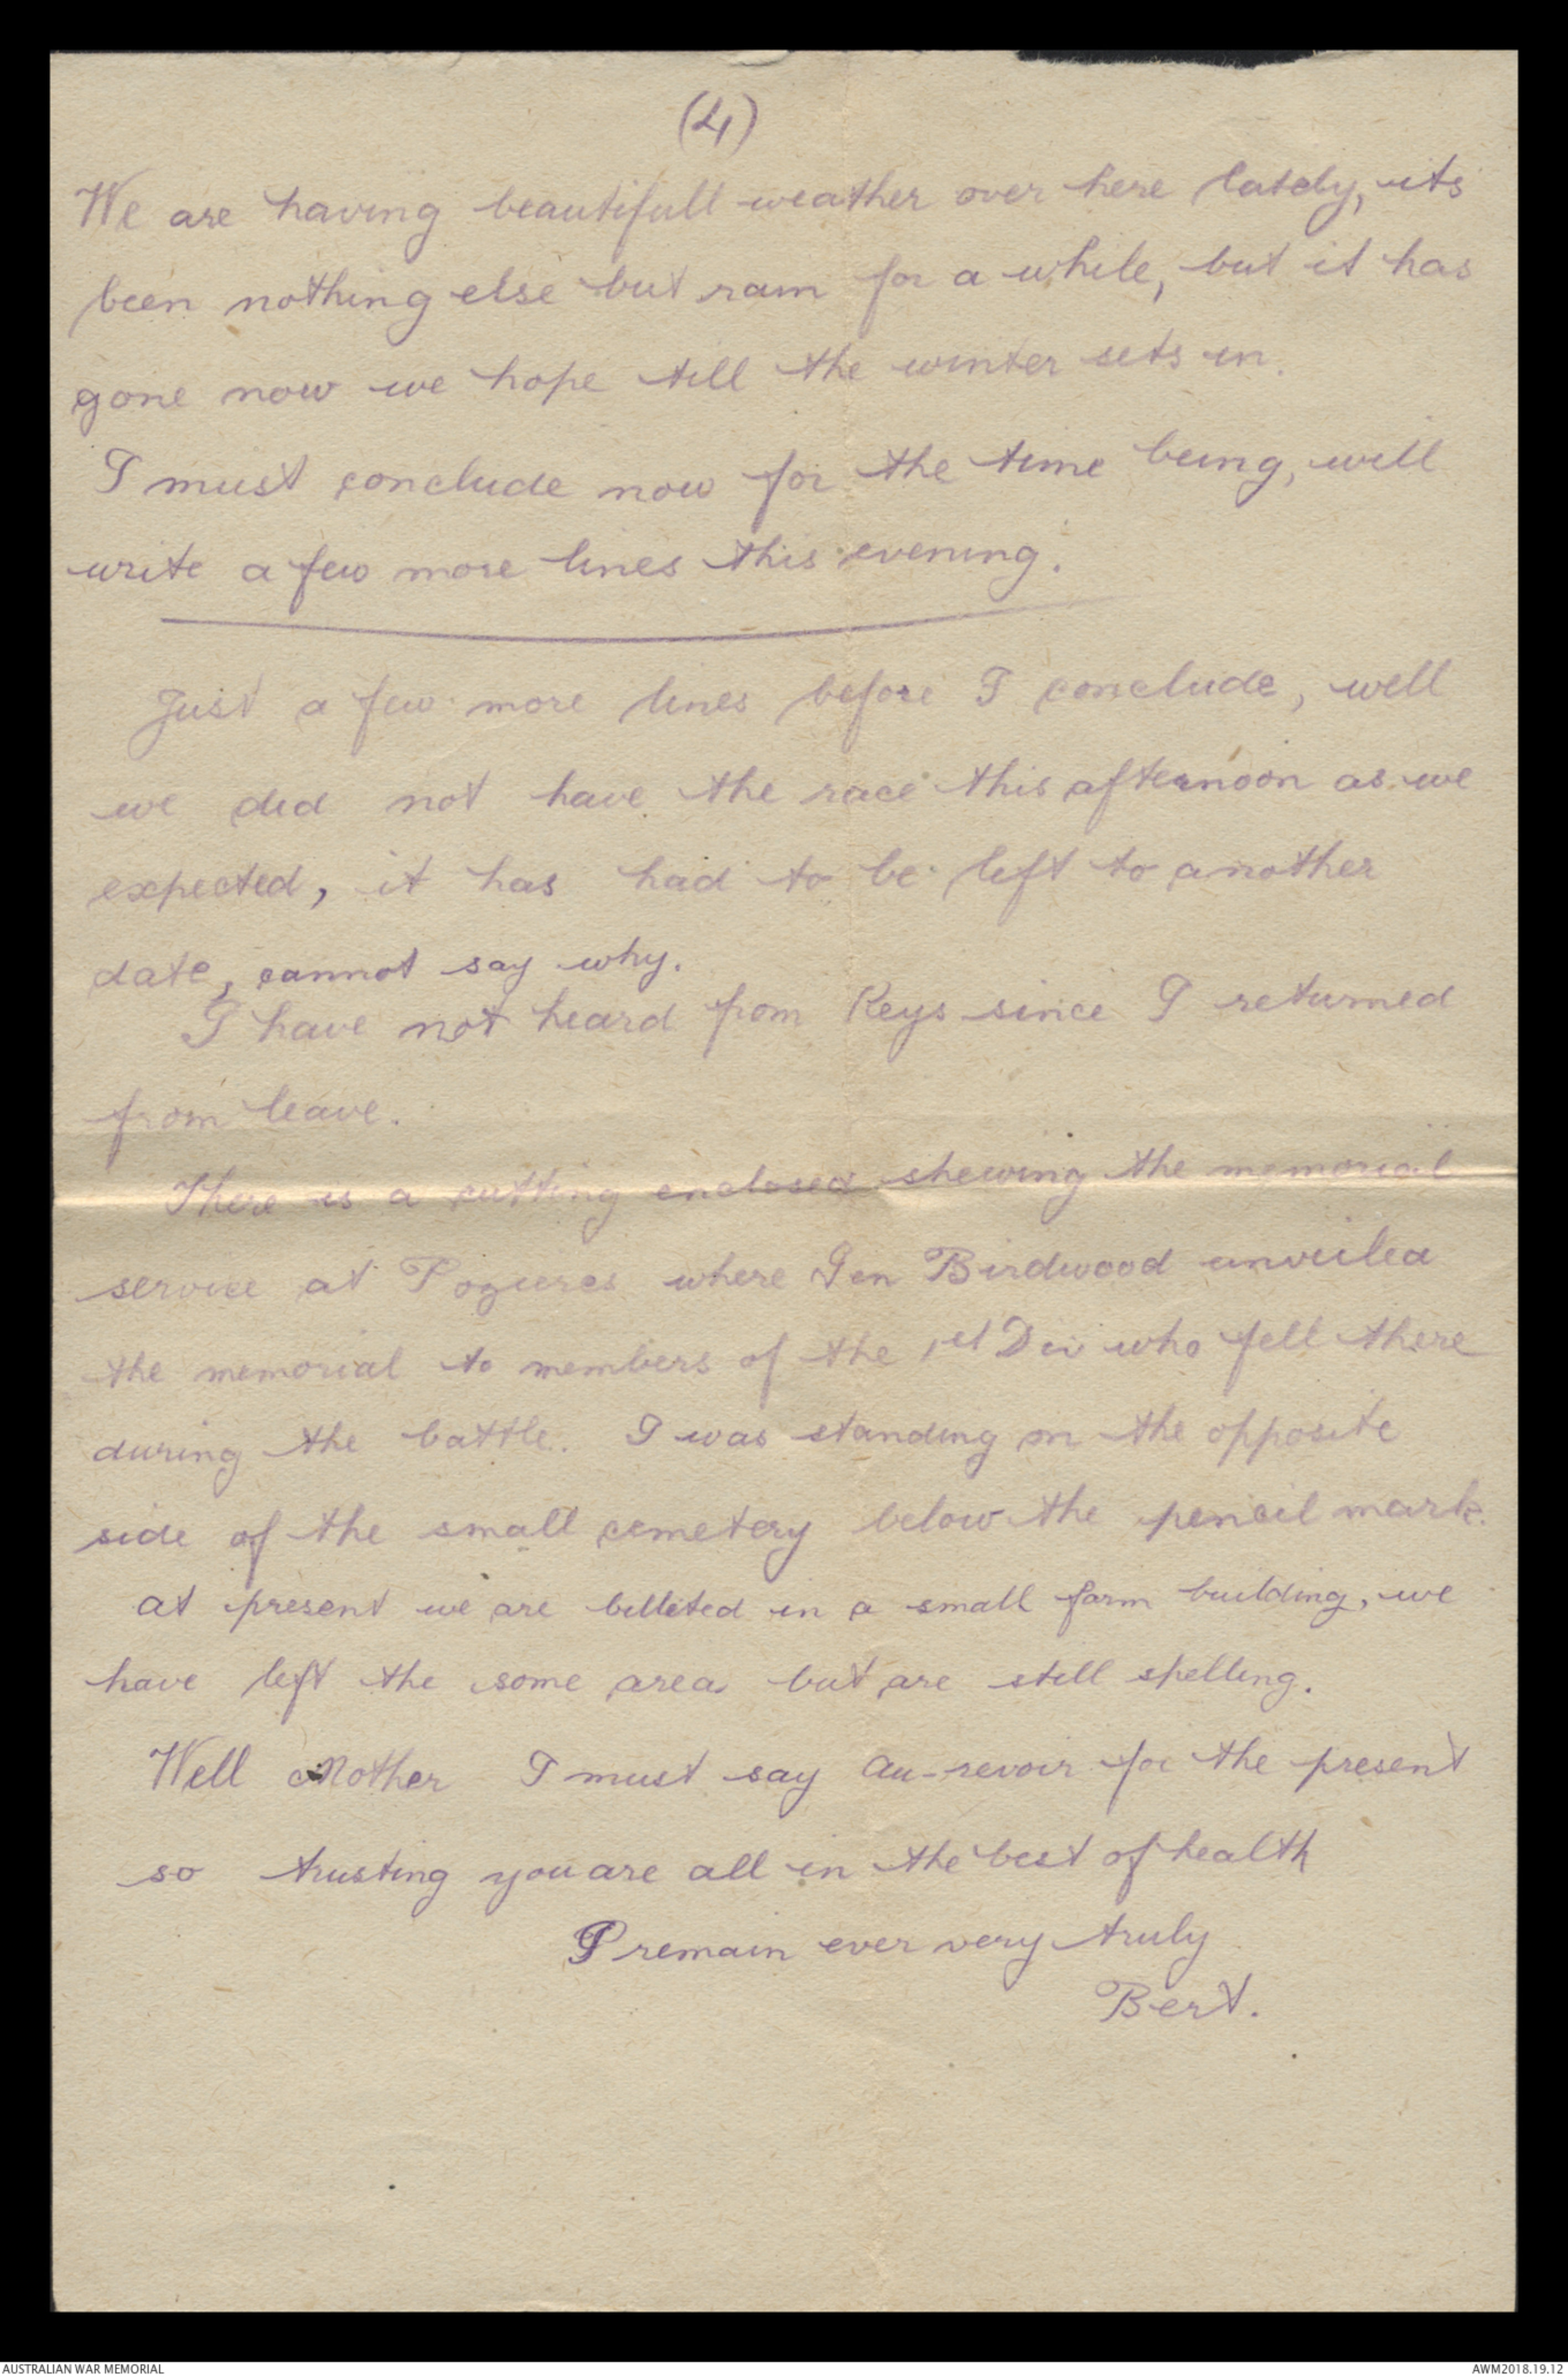 (4)
We are having beautifull weather over here lately, its
been nothing else but rain for a while, but it has
gone now we hope till the winter sets in.
I must conclude now for the time being, will
write a few more lines this evening.
Just a few more lines before I conclude, well
we did not have the race this afternoon as we
expected, it has had to be left to another
date, cannot say why.
I have not heard from Keys since I returned
from leave.
There is a cutting enclosed shewing the memorial
service at Pozieres where Gen Birdwood unveiled
the memorial to members of the 1st Div who fell there
during the battle. I was standing on the opposite
side of the small cemetery below the pencil mark.
at present we are billeted in a small farm building, we
have left the some area but are still spelling.
Well Mother I must say au-revoir for the present
so trusting you are all in the best of health
I remain ever very truly
Bert.
AUSTRALIAN WAR MEMORIAL
AWM2018.19.12